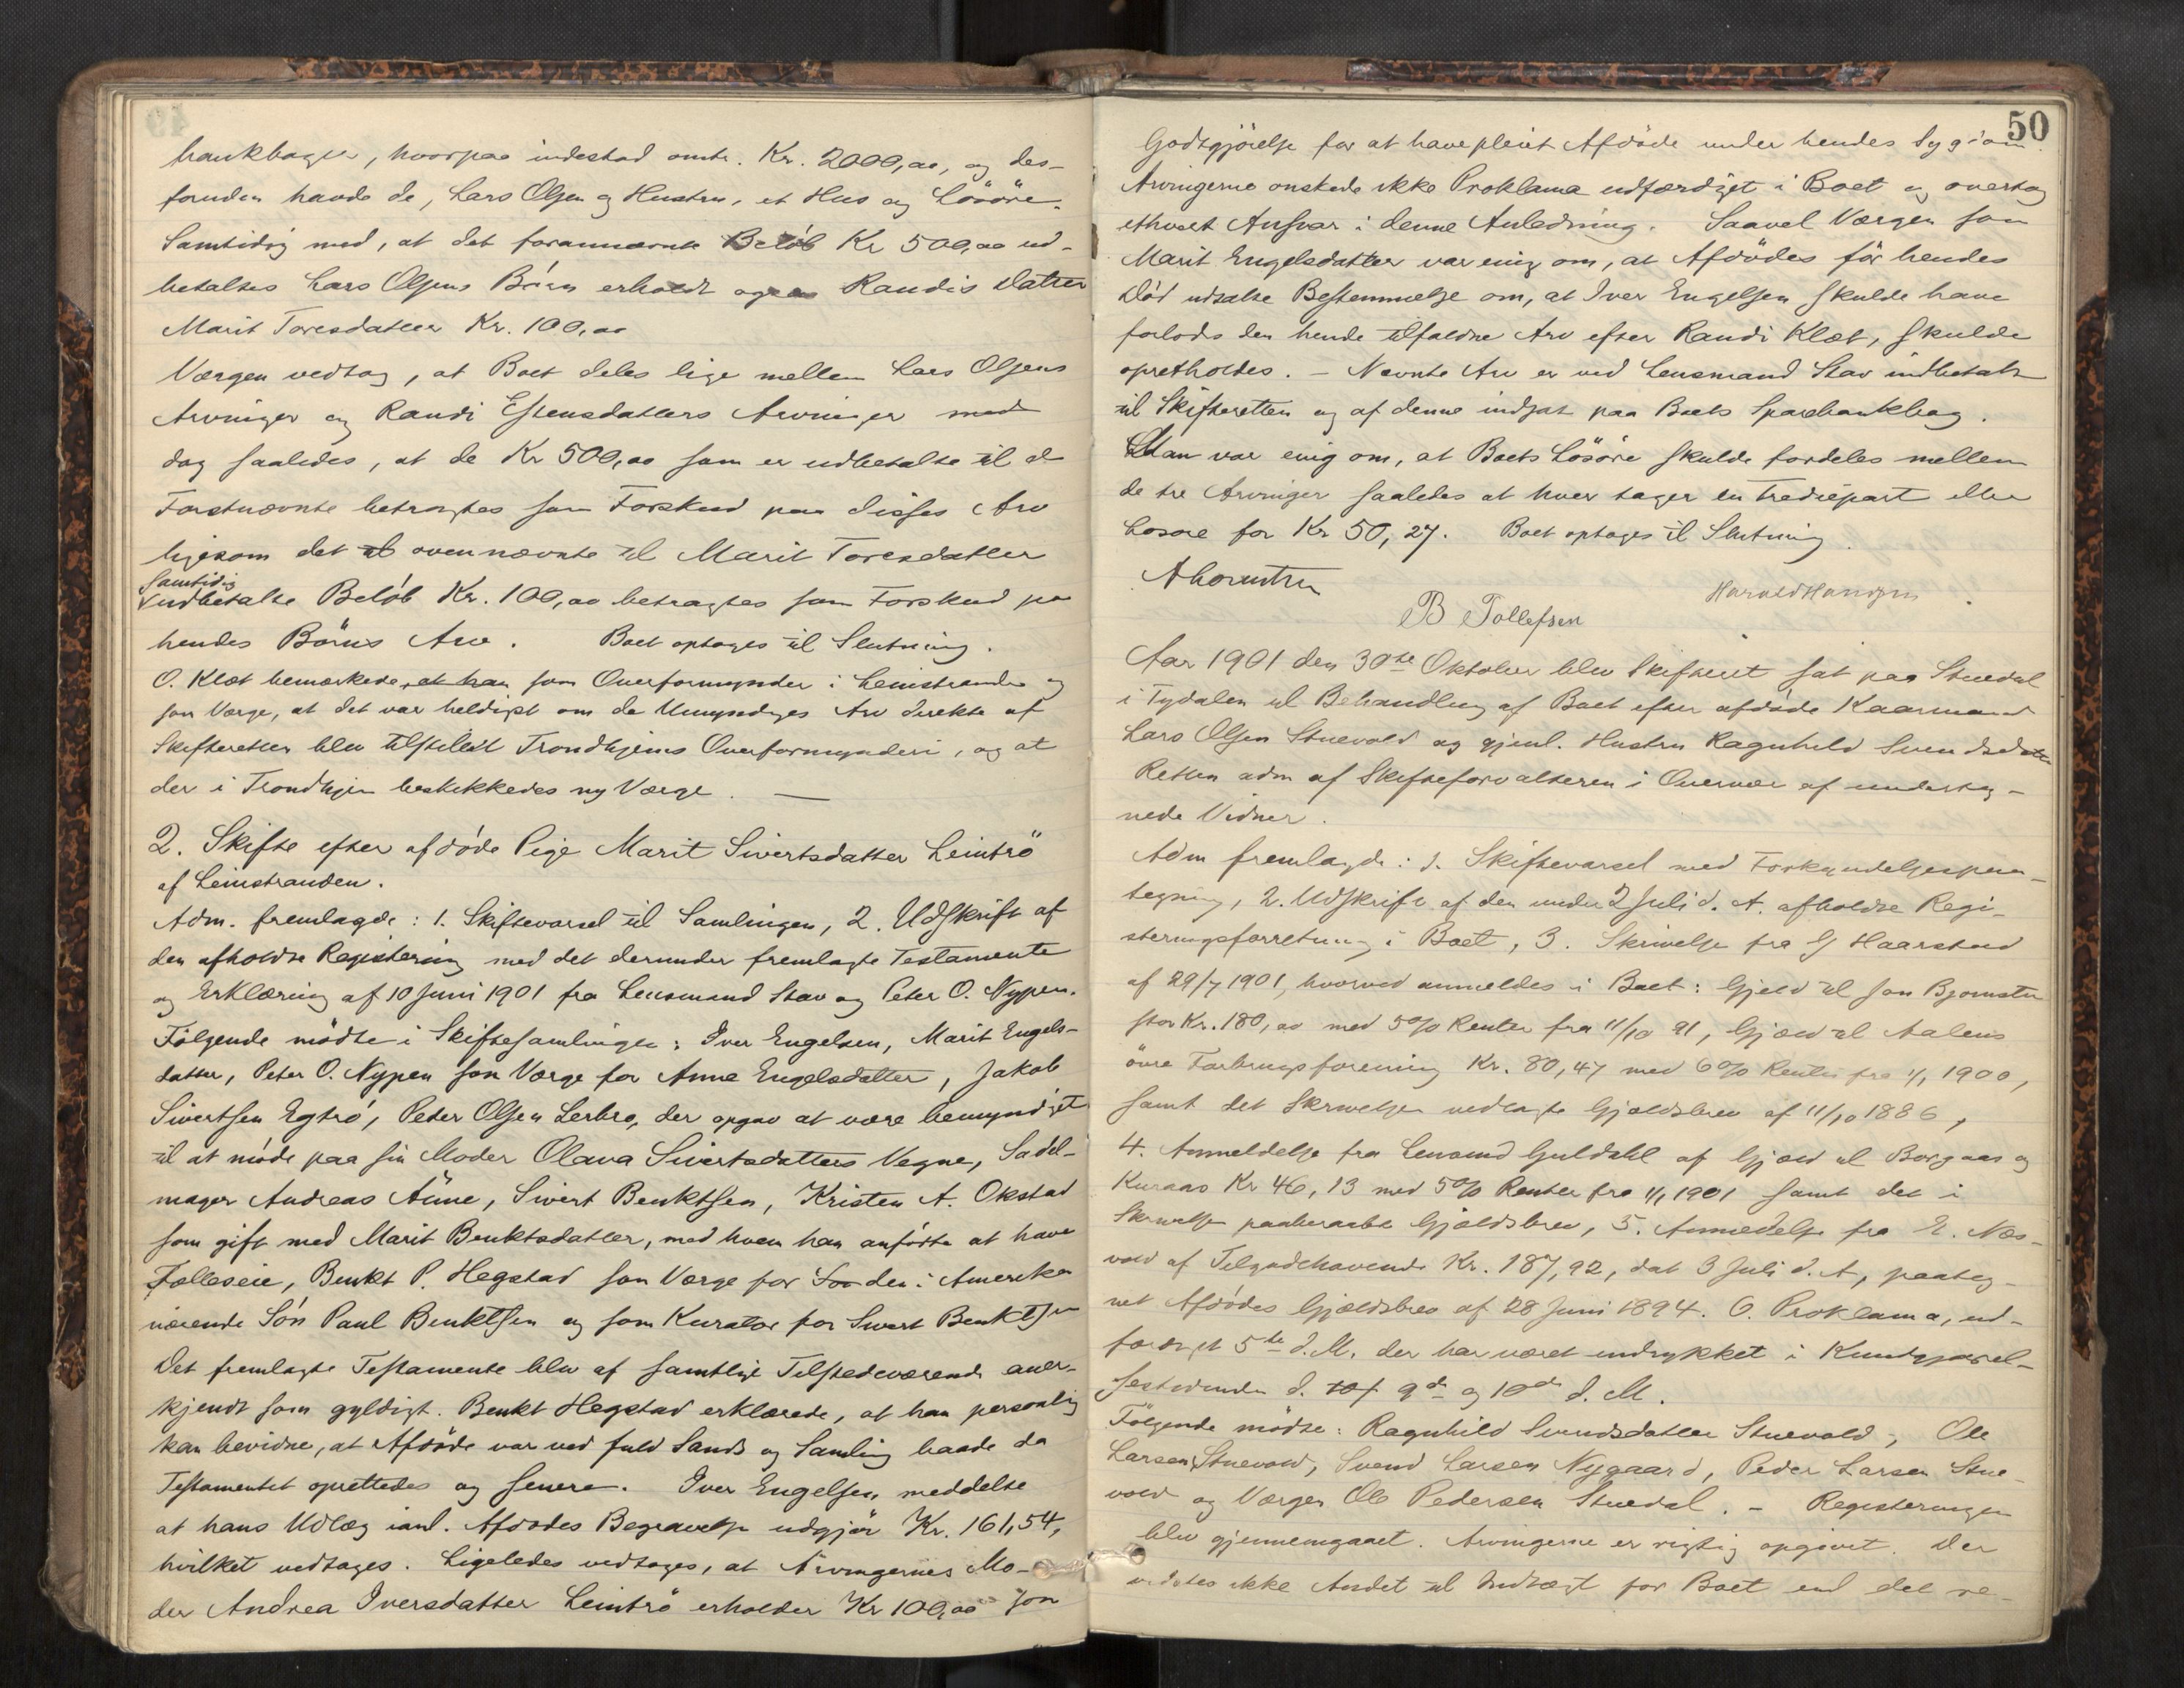 bankbøger, hvorpaa indestod omtr. Kr. 2000,00, og des-
foruden havde de, Lars Olsen og Hustru, et Hus og Løsøre.
Samtidig med, at det forannævnte Beløb Kr 500,00 ud-
betaltes Lars Olsens Børn erholdt ogsaa Randis Datter
Marit Toresdatter Kr. 100,00
Værgen vedtog, at Boet deles lige mellem Lars Olsens
Arvinger og Randi Estensdatters Arvinger med
dog saaledes, at de Kr 500,00 som er udbetalte til de
Førstnævnte betragtes som Forskud paa disses Arv
ligesom det ovennævnte til Marit Toresdatter
samtidig
udbetalte Beløb Kr. 100,00 betragtes som Forskud paa
hendes Börns Arv. Boet optages til Slutning.
O. Klæt bemærkede, at han som Overformynder i Leinstranden og
som Værge, at det var heldigst om de Umyndiges Arv direkte af
Skifteretten blev tilstillet Trondhjems Overformynderi, og at
der i Trondhjem beskikkedes ny Værge. —
2. Skifte efter afdøde Pige Marit Sivertsdatter Leintrö
af Leinstranden.
Adm. fremlagde: 1. Skiftevarsel til Samlingen, 2. Udskrift af
den afholdte Registrering med det derunder fremlagte Testamente
og Erklæring af 10 Juni 1901 fra Lensmand Stav og Peter O. Nypen.
Følgende mødte i Skiftesamlingen: Iver Engelsen, Marit Engels-
datter, Peter O. Nypen som Værge for Anne Engelsdatter, Jakob
Sivertsen Egtrø, Peter Olsen Lerbro, der opgav at være bemyndiget
til at møde paa sin Moder Olava Sivertsdatters Vegne, Sadel-
mager Andreas Aüne, Sivert Benktsen, Kristen A. Okstad
som gift med Marit Benktsdatter, med hvem han anførte at have
Fælleseie, Benkt P. Hegstad som Værge for den i Amerika
værende Søn Paul Benktsen og som Kurator for Sivert Benktsen
Det fremlagte Testamente blev af samtlige Tilstedeværende aner-
kjendt som gyldigt. Benkt Hegstad erklærede, at han personlig
kan bevidne, at Afdøde var ved fuld Sands og Samling baade da
Testamentet oprettedes og senere. Iver Engelsen meddelte
at hans Udlæg ianl. Afdødes Begravelse udgjør Kr. 161,54,
hvilket vedtages. Ligeledes vedtages, at Arvingernes Mo-
der Andrea Iversdatter Leintrö erholder Kr 100,00 som
50
Godtgjørelse for at have pleiet Afdøde under hendes Sygdom.
Arvingerne ønskede ikke Proklama udfærdiget i Boet og overtog
ethvert Ansvar i denne Anledning. Saavel Værgen som
Marit Engelsdatter var enig om, at Afdødes før hendes
Død udtalte Bestemmelse om, at Iver Engelsen skulde have
forlods den hende tilfaldne Arv efter Randi Klæt, skulde
opretholdes. — Nævnte Arv er ved Lensmand Stav indbetalt
til Skifteretten og af denne indsat paa Boets Sparebankbog.
Man var enig om, at Boets Løsøre skulde fordeles mellem
de tre Arvinger saaledes at hver tager en Trediepart eller
Løsøre for Kr 50,27. Boet optages til Slutning.
B Tollefsen
Harald Hansen
Aar 1901 den 30te Oktober blev Skifteret sat paa Stuedal
i Tydalen til Behandling af Boet efter afdøde Kaarmand
Lars Olsen Stuevold og gjenl. Hustru Ragnhild Svendsdatter
Retten adm af Skifteforvalteren i Overvær af underteg-
nede Vidner.
Adm fremlagde: 1. Skiftevarsel med Forkyndelsespaa-
tegning, 2. Udskrift af den under 2 Juli d. A. afholdte Regi-
streringsforretning i Boet, 3. Skrivelse fra Haarstad
af 29/7 1901, hvorved anmeldes i Boet: Gjeld til
stor Kr. 180,00 med 5% Renter fra 11/10 91, Gjæld til Aalens
övre Forbrugsforening Kr. 80,47 med 6% Renter fra 1/1 1900,
samt det Skrivelsen vedlagte Gjældsbrev af 11/10 1886,
4. Anmeldelse fra Lensmand Guldahl af Gjæld til Borgaas og
Kuraas Kr 46,13 med 5% Renter fra 1/1 1901 samt det i
Skrivelsen paaberaabte Gjældsbrev, 5. Anmeldelse fra E. Næs-
vold af Tilgodehavende Kr. 187,92, dat 3 Juli d. A, paateg-
net Afdødes Gjældsbrev af 28 Juni 1894. 6. Proklama, ud-
færdiget 5te d. M. der har været indrykket i Kundgjørel-
sestidende d. 9de og 10de d. M.
Følgende mødte: Ragnhild Svendsdatter Stuevold, Ole
Larsen Stuevold, Svend Larsen Nygaard, Peder Larsen Stue-
vold og Værgen Ole Pedersen Stuedal. — Registreringen
blev gjennemgaaet. Arvingerne er rigtig opgivet. Der
vidstes ikke Andet til Indtægt for Boet end det re-